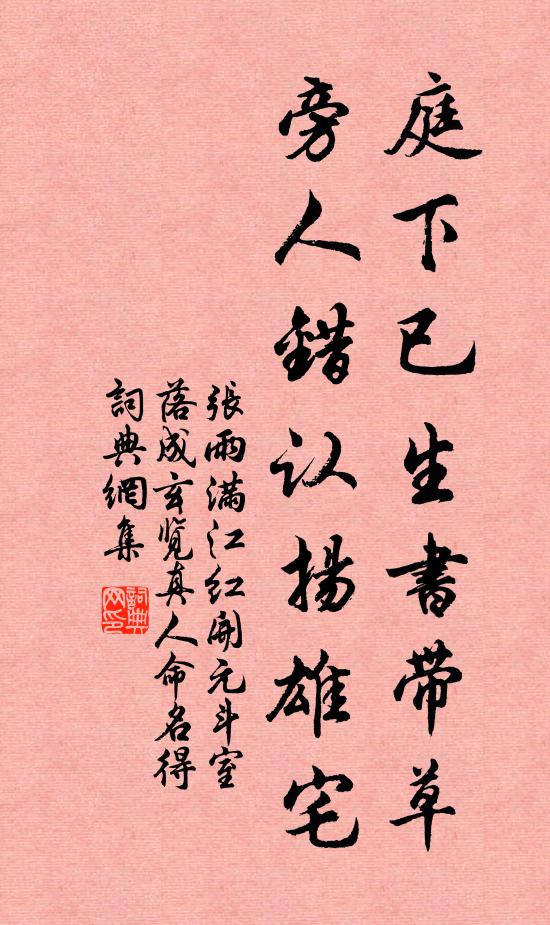 庭下已生書帶草
旁人錯认揚雄宅
張雨满江红開元斗室
落成玄覽真人命名得
詞典網集
詞典网印